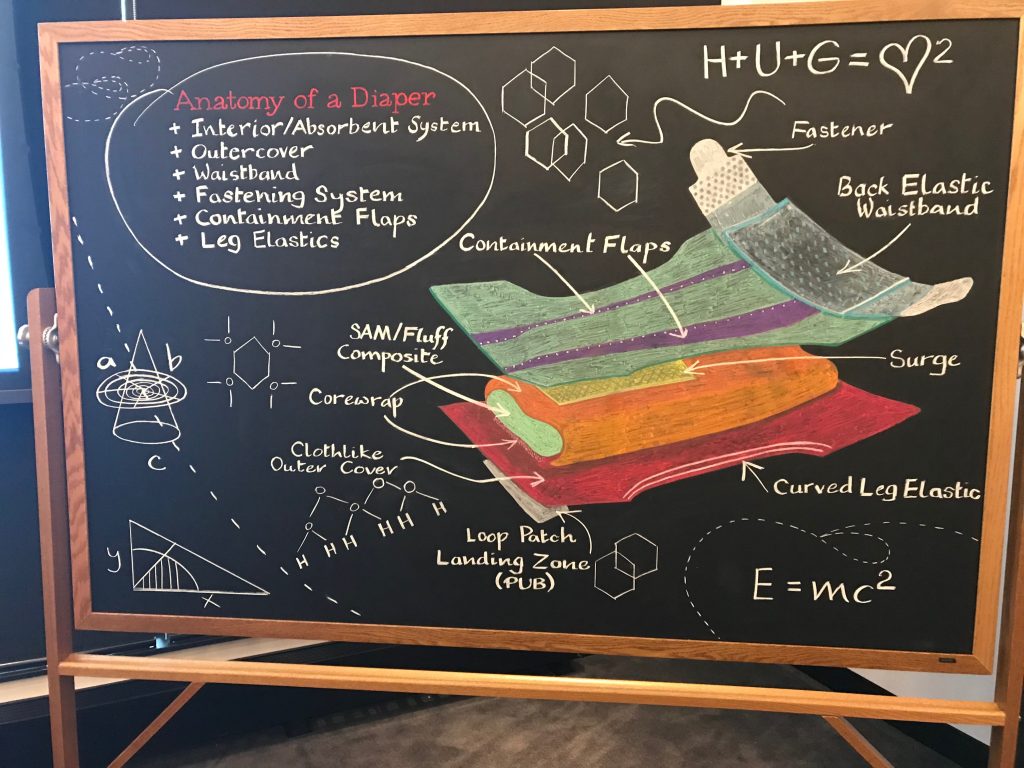 H+U+G=♡²
Anatomy of a Diaper
+ Interior/Absorbent System
+ Outercover
+ Waistband
+ Fastening System
+ Containment Flaps
+ Leg Elastics
Fastener
Back Elastic
Waistband
Containment Flaps
SAM/Fluff
Composite
Surge
Corewrap
Clothlike
Outer Cover
Curved Leg Elastic
Loop Patch
Landing Zone
(PUB)
a b
c
O O
O O
O O O
O O
H H H H H H
y
x
E = mc²